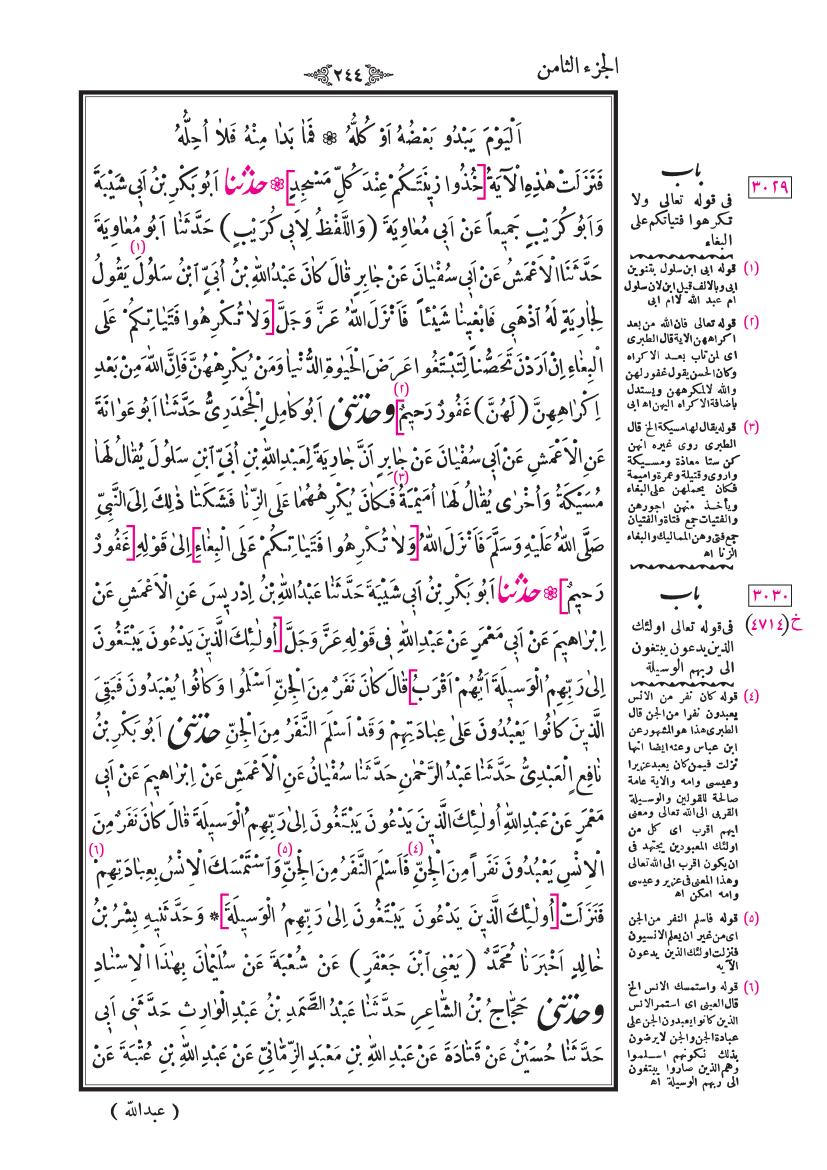 الجزء الثامن
٢٤٤
اَلْيَوْمَ يَبْدُو بَعْضُهُ اَوْ كُلُّهُ ۞ فَمَا بَدَا مِنْهُ فَلَا اُحِلُّهُ
فَنَزَلَتْ هٰذِهِ الْآيَةُ [خُذُوا زِينَتَكُمْ عِنْدَ كُلِّ مَسْجِدٍ] ۞ حَدَّثَنَا اَبُو بَكْرِ بْنُ اَبِى شَيْبَةَ
وَاَبُو كُرَيْبٍ جَمِيعاً عَنْ اَبِى مُعَاوِيَةَ (وَاللَّفْظُ لِاَبِى كُرَيْبٍ) حَدَّثَنَا اَبُو مُعَاوِيَةَ
حَدَّثَنَا الْاَعْمَشُ عَنْ اَبِى سُفْيَانَ عَنْ جَابِرٍ قَالَ كَانَ عَبْدُ اللّٰهِ بْنُ اُبَىٍّ (١) ابْنُ سَلُولَ يَقُولُ
لِجَارِيَةٍ لَهُ اذْهَبِى فَابْغِينَا شَيْئاً فَاَنْزَلَ اللّٰهُ عَزَّ وَجَلَّ [وَلَا تُكْرِهُوا فَتَيَاتِكُمْ عَلَى
الْبِغَاءِ اِنْ اَرَدْنَ تَحَصُّناً لِتَبْتَغُوا عَرَضَ الْحَيٰوةِ الدُّنْيَا وَمَنْ يُكْرِهْهُنَّ فَاِنَّ اللّٰهَ مِنْ بَعْدِ
اِكْرَاهِهِنَّ (لَهُنَّ) غَفُورٌ رَحِيمٌ] (٢) وحَدَّثَنِى اَبُو كَامِلٍ الْجَحْدَرِىُّ حَدَّثَنَا اَبُو عَوَانَةَ
عَنِ الْاَعْمَشِ عَنْ اَبِى سُفْيَانَ عَنْ جَابِرٍ اَنَّ جَارِيَةً لِعَبْدِ اللّٰهِ بْنِ اُبَىٍّ ابْنِ سَلُولَ يُقَالُ لَهَا
مُسَيْكَةُ وَاُخْرٰى يُقَالُ لَهَا اُمَيْمَةُ (٣) فَكَانَ يُكْرِهُهُمَا عَلَى الزِّنَا فَشَكَتَا ذٰلِكَ اِلَى النَّبِىِّ
صَلَّى اللّٰهُ عَلَيْهِ وَسَلَّمَ فَاَنْزَلَ اللّٰهُ [وَلَا تُكْرِهُوا فَتَيَاتِكُمْ عَلَى الْبِغَاءِ] اِلٰى قَوْلِهِ [غَفُورٌ
رَحِيمٌ] ۞ حَدَّثَنَا اَبُو بَكْرِ بْنُ اَبِى شَيْبَةَ حَدَّثَنَا عَبْدُ اللّٰهِ بْنُ اِدْرِيسَ عَنِ الْاَعْمَشِ عَنْ
اِبْرَاهِيمَ عَنْ اَبِى مَعْمَرٍ عَنْ عَبْدِ اللّٰهِ فِى قَوْلِهِ عَزَّ وَجَلَّ [اُولٰئِكَ الَّذِينَ يَدْعُونَ يَبْتَغُونَ
اِلٰى رَبِّهِمُ الْوَسِيلَةَ اَيُّهُمْ اَقْرَبُ] قَالَ كَانَ نَفَرٌ مِنَ الْجِنِّ اَسْلَمُوا وَكَانُوا يُعْبَدُونَ فَبَقِىَ
الَّذِينَ كَانُوا يَعْبُدُونَ عَلٰى عِبَادَتِهِمْ وَقَدْ اَسْلَمَ النَّفَرُ مِنَ الْجِنِّ حَدَّثَنِى اَبُو بَكْرِ بْنُ
نَافِعٍ الْعَبْدِىُّ حَدَّثَنَا عَبْدُ الرَّحْمٰنِ حَدَّثَنَا سُفْيَانُ عَنِ الْاَعْمَشِ عَنْ اِبْرَاهِيمَ عَنْ اَبِى
مَعْمَرٍ عَنْ عَبْدِ اللّٰهِ اُولٰئِكَ الَّذِينَ يَدْعُونَ يَبْتَغُونَ اِلٰى رَبِّهِمُ الْوَسِيلَةَ قَالَ كَانَ نَفَرٌ مِنَ
الْاِنْسِ يَعْبُدُونَ نَفَراً مِنَ الْجِنِّ (٤) فَاَسْلَمَ النَّفَرُ مِنَ الْجِنِّ (٥) وَاسْتَمْسَكَ الْاِنْسُ بِعِبَادَتِهِمْ (٦)
فَنَزَلَتْ [اُولٰئِكَ الَّذِينَ يَدْعُونَ يَبْتَغُونَ اِلٰى رَبِّهِمُ الْوَسِيلَةَ] * وَحَدَّثَنِيهِ بِشْرُ بْنُ
خَالِدٍ اَخْبَرَنَا مُحَمَّدٌ (يَعْنِى ابْنَ جَعْفَرٍ) عَنْ شُعْبَةَ عَنْ سُلَيْمَانَ بِهٰذَا الْاِسْنَادِ
وحَدَّثَنِى حَجَّاجُ بْنُ الشَّاعِرِ حَدَّثَنَا عَبْدُ الصَّمَدِ بْنُ عَبْدِ الْوَارِثِ حَدَّثَنِى اَبِى
حَدَّثَنَا حُسَيْنٌ عَنْ قَتَادَةَ عَنْ عَبْدِ اللّٰهِ بْنِ مَعْبَدٍ الزِّمَّانِىِّ عَنْ عَبْدِ اللّٰهِ بْنِ عُتْبَةَ عَنْ
( عبدالله )
٣٠٢٩
باب
فى قوله تعالى ولا
تكرهوا فتياتكم على
البغاء
(١) قوله ابى ابن سلول بتنوين
ابى وبالالف قبل ابن لان سلول
ام عبد الله لا ام ابى
(٢) قوله تعالى فان الله من بعد
اكراههن الاية قال الطبرى
اى لمن تاب بعد الاكراه
وكان الحسن يقول غفور لهن
والله لا لمكرههن ويستدل
باضافة الاكراه اليهن اه ابى
(٣) قوله يقال لها مسيكة الخ قال
الطبرى روى غيره انهن
كن ستا معاذة ومسيكة
واروى وقتيلة وعمرة واميمة
فكان يحملهن على البغاء
ويأخذ منهن اجورهن
والفتيات جمع فتاة والفتيان
جمع فتى وهن المماليك والبغاء
الزنا اه
٣٠٣٠
باب
خ (٤٧١٤)
فى قوله تعالى اولئك
الذين يدعون يبتغون
الى ربهم الوسيلة
(٤) قوله كان نفر من الانس
يعبدون نفرا من الجن قال
الطبرى هذا هو المشهور عن
ابن عباس وعنه ايضا انها
نزلت فيمن كان يعبد عزيرا
وعيسى وامه والاية عامة
صالحة للقولين والوسيلة
القربى الى الله تعالى ومعنى
ايهم اقرب اى كل من
اولئك المعبودين يجتهد فى
ان يكون اقرب الى الله تعالى
وهذا المعنى فى عزير وعيسى
وامه امكن اه
(٥) قوله فاسلم النفر من الجن
اى من غير ان يعلم الانسيون
فنزلت اولئك الذين يدعون
الآيه
(٦) قوله واستمسك الانس الخ
قال العينى اى استمر الانس
الذين كانوا يعبدون الجن على
عبادة الجن والجن لا يرضون
بذلك لكونهم اسلموا
وهم الذين صاروا يبتغون
الى ربهم الوسيلة اه